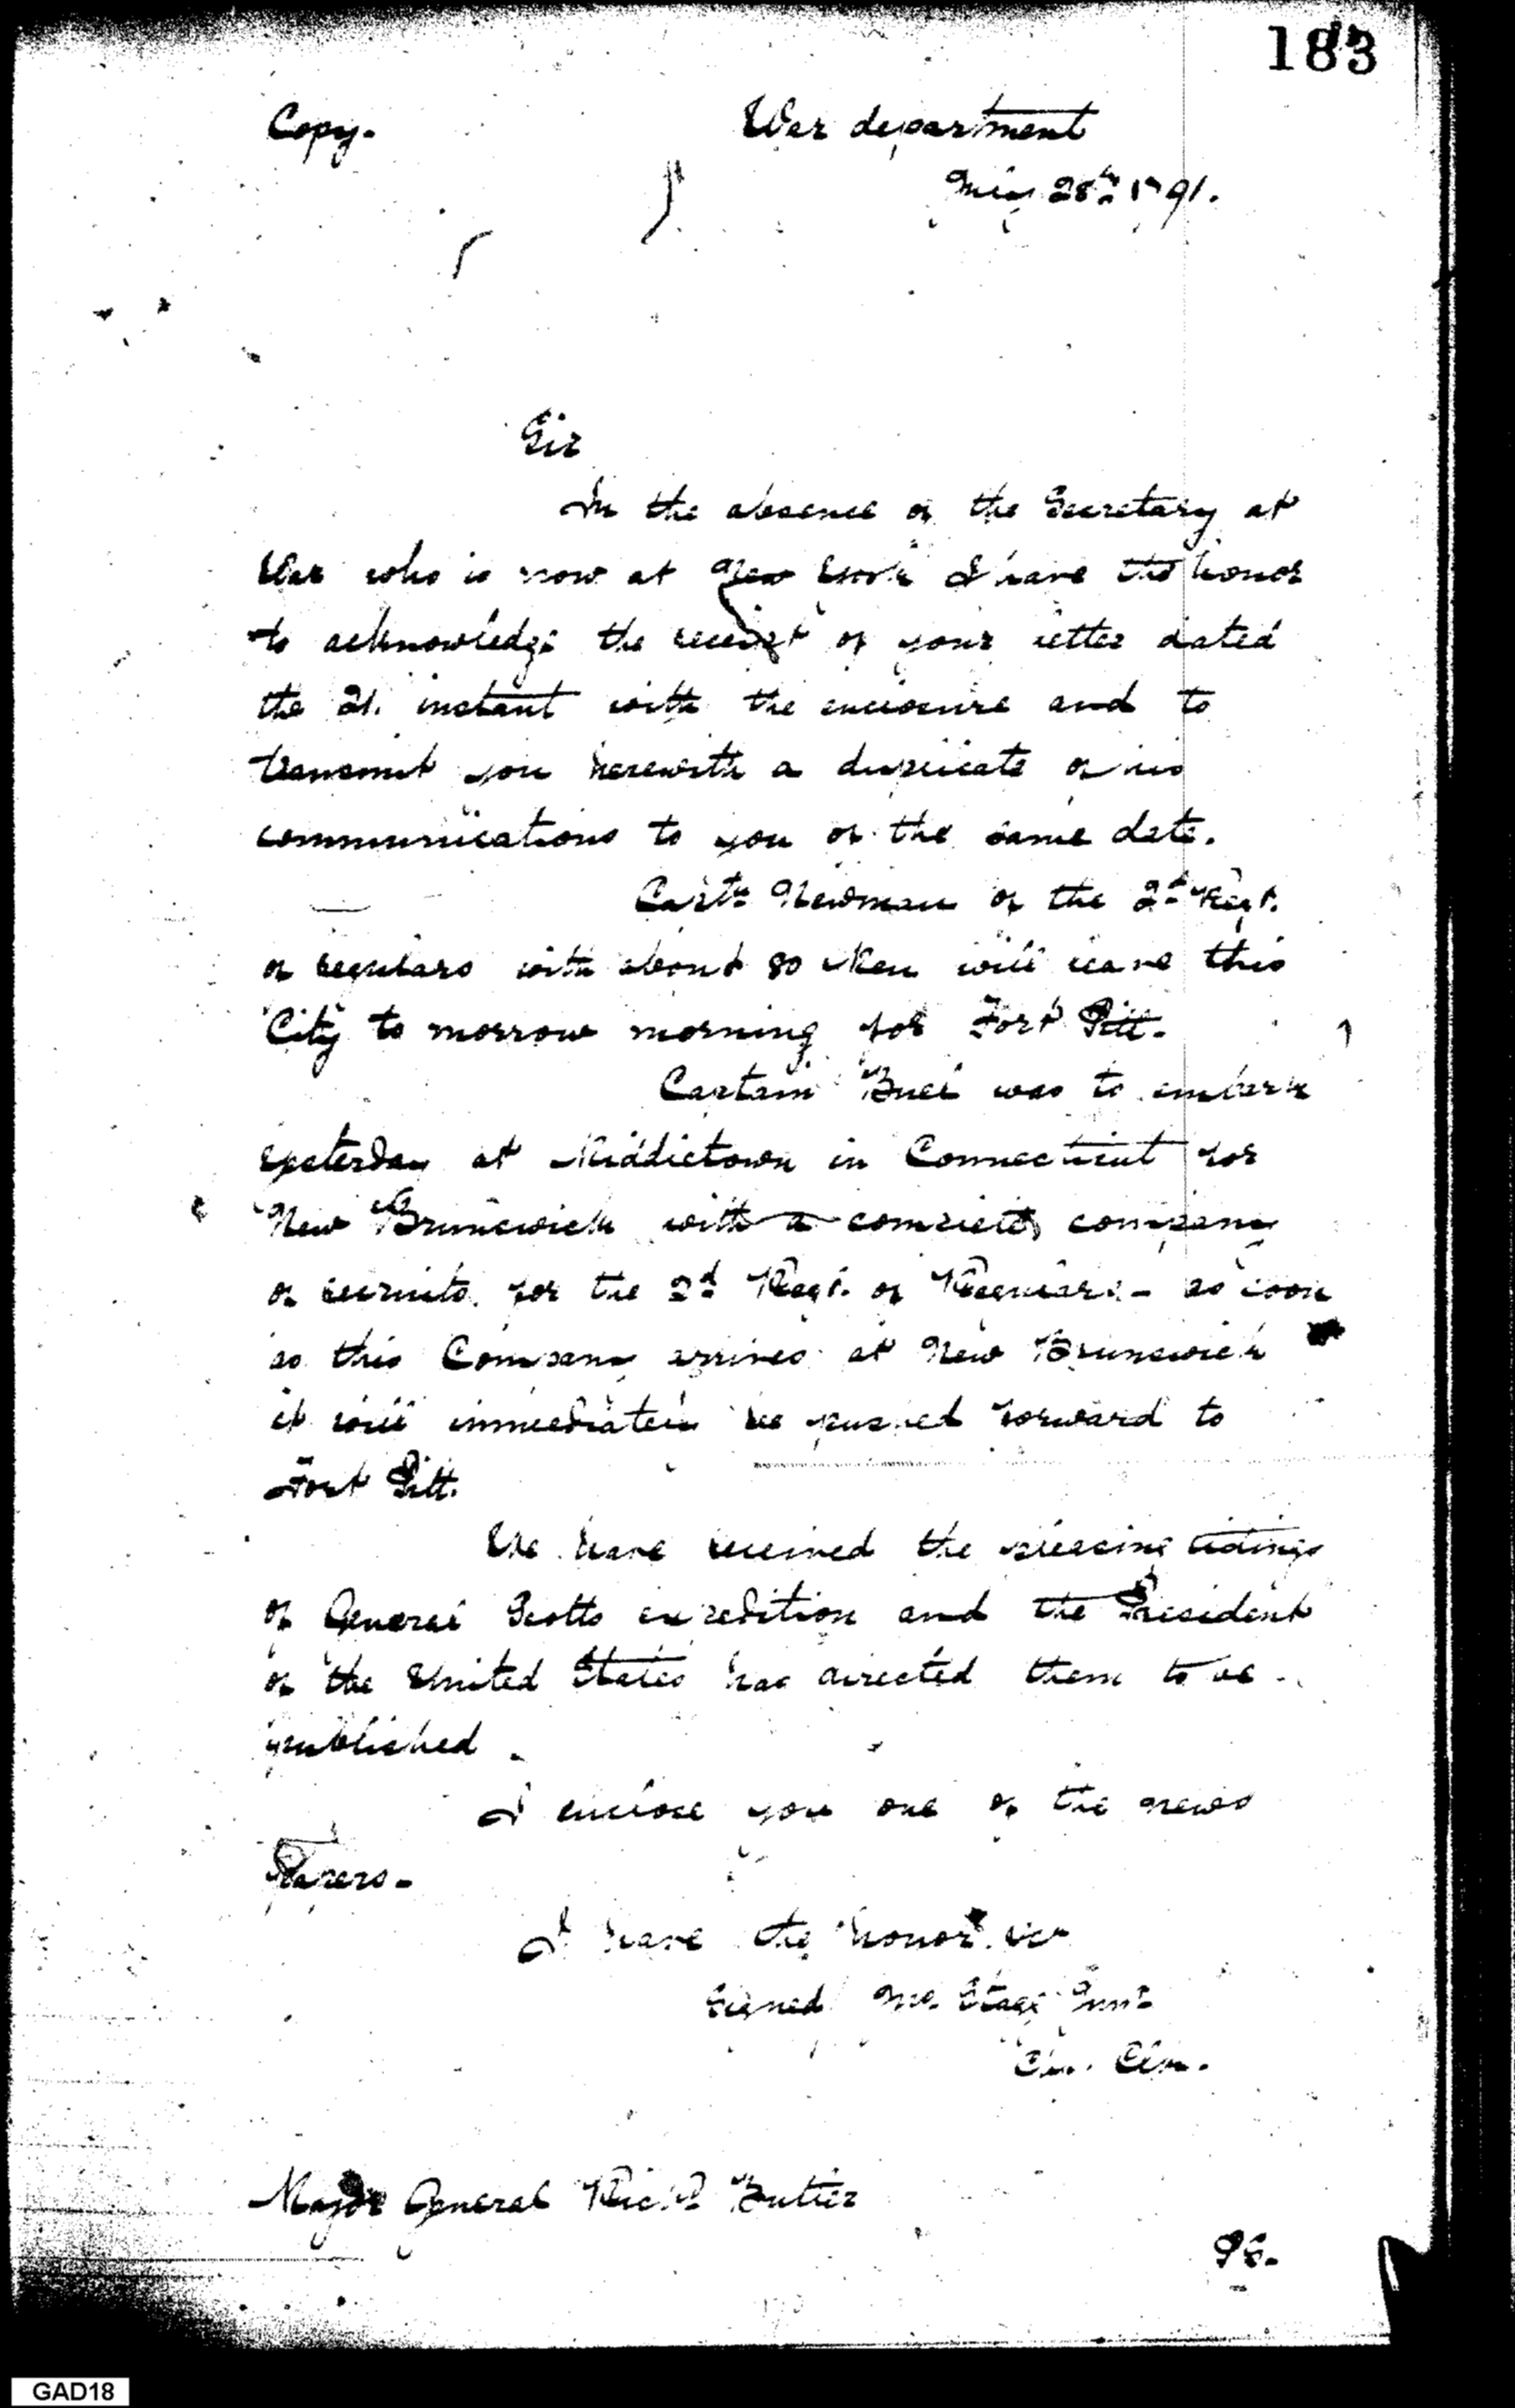 183
Copy.
War department
28th 1791.
Sir
In the absence of the Secretary at
War who is now at New York I have the honor
to acknowledge the receipt of your letter dated
the 21. instant with the enclosure and to
transmit you herewith a duplicate of his
communications to you of the same date.
Captn Newman of the 2d Regt.
of regulars with about 80 Men will leave this
City to morrow morning for Fort Pitt.
Captain Buel was to embark
yesterday at Middletown in Connecticut for
New Brunswick with a complete company
of recruits for the 2d Regt. of Regulars - as soon
as this Company arrives at New Brunswick
it will immediately be pushed forward to
Fort Pitt.
We have received the pleasing tidings
of General Scotts expedition and the President
of the United States has directed them to be
published
I enclose you one of the news
Papers -
I have the honor &ca
Signed Jno. Stagg Junr
Ch. Clk.
Major General Richd Butler
PS.
GAD18